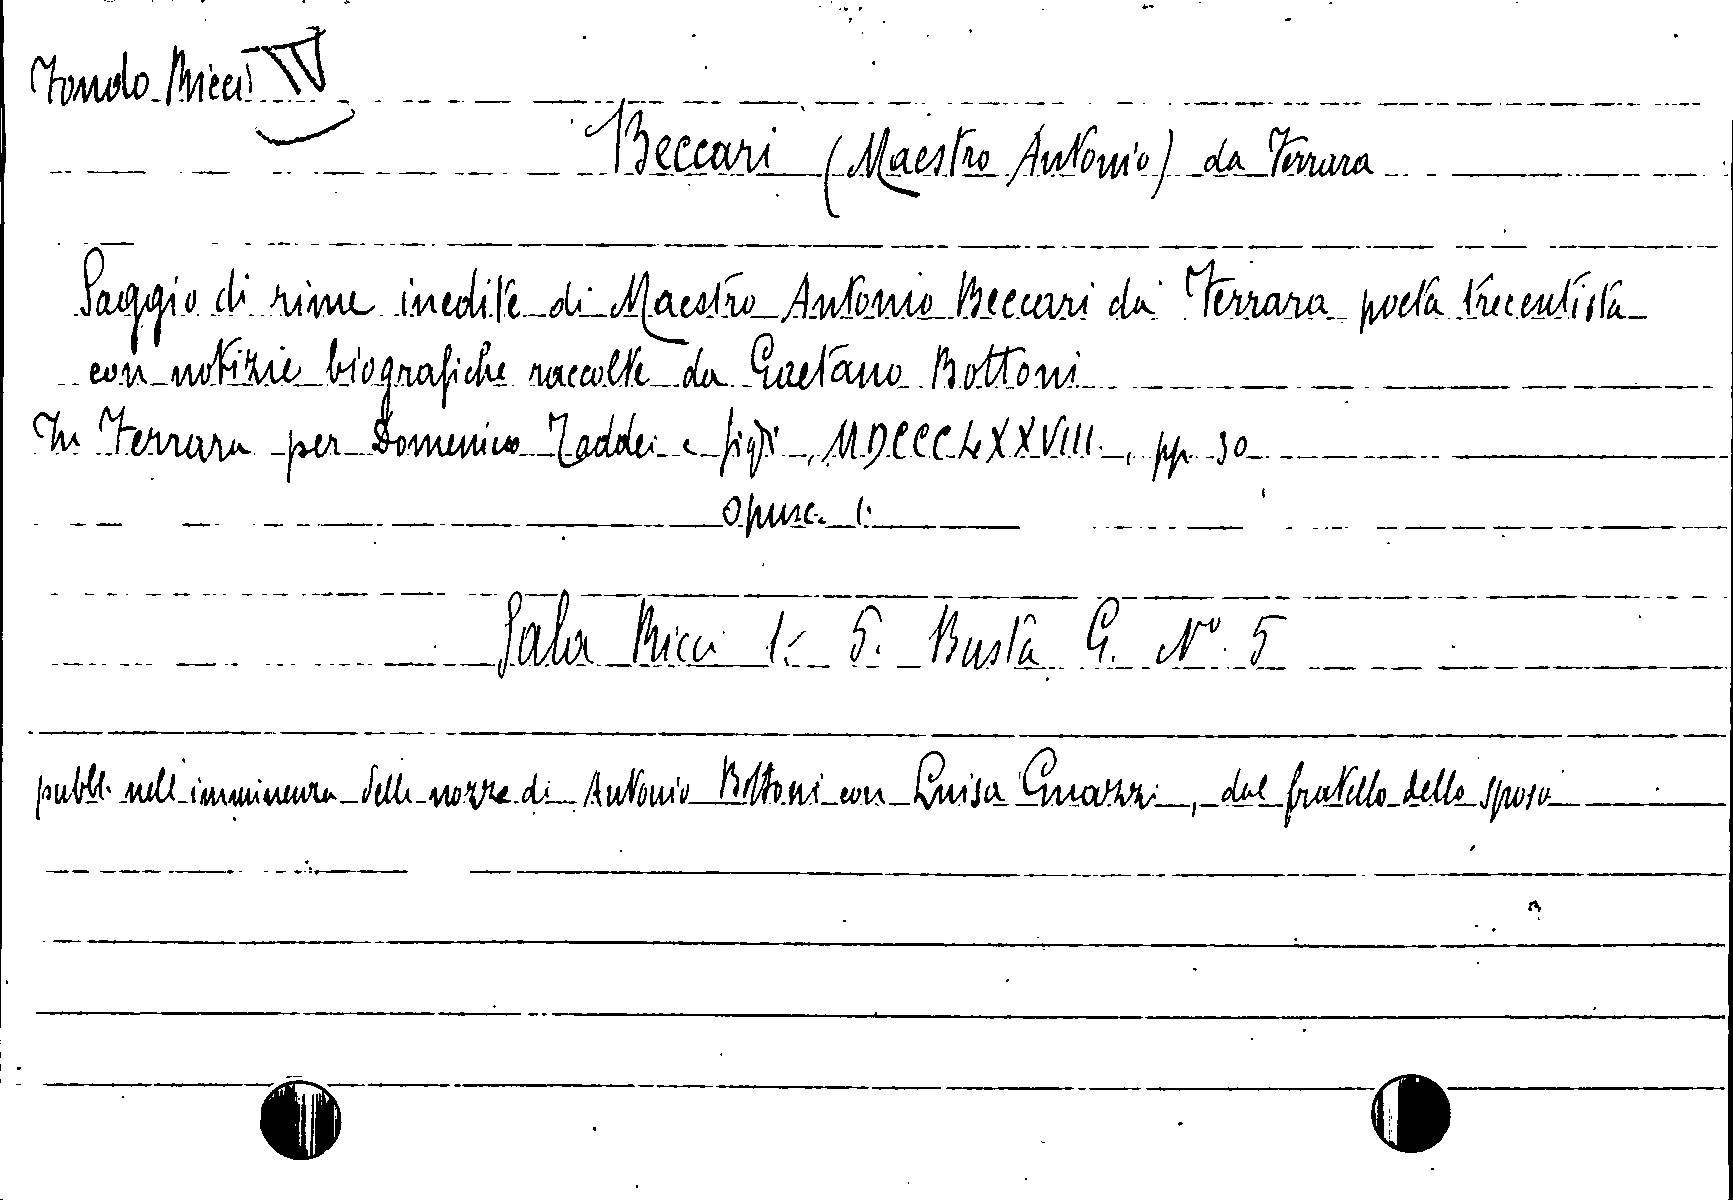 Fondo Ricci IV
Beccari (Maestro Antonio) da Ferrara
Saggio di rime inedite di Maestro Antonio Beccari da Ferrara poeta trecentista
con notizie biografiche raccolte da Gaetano Bottoni
In Ferrara per Domenico Taddei e figli, MDCCCLXXVIII., pp. 30
opusc.
Sala Ricci 5. Busta G. N° 5
pubbl. nell'imminenza delle nozze di Antonio Bottoni con Luisa Gnazzi, dal fratello dello sposo